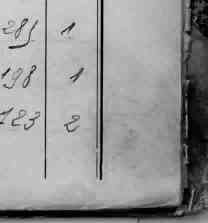 285 1
198 1
123 2